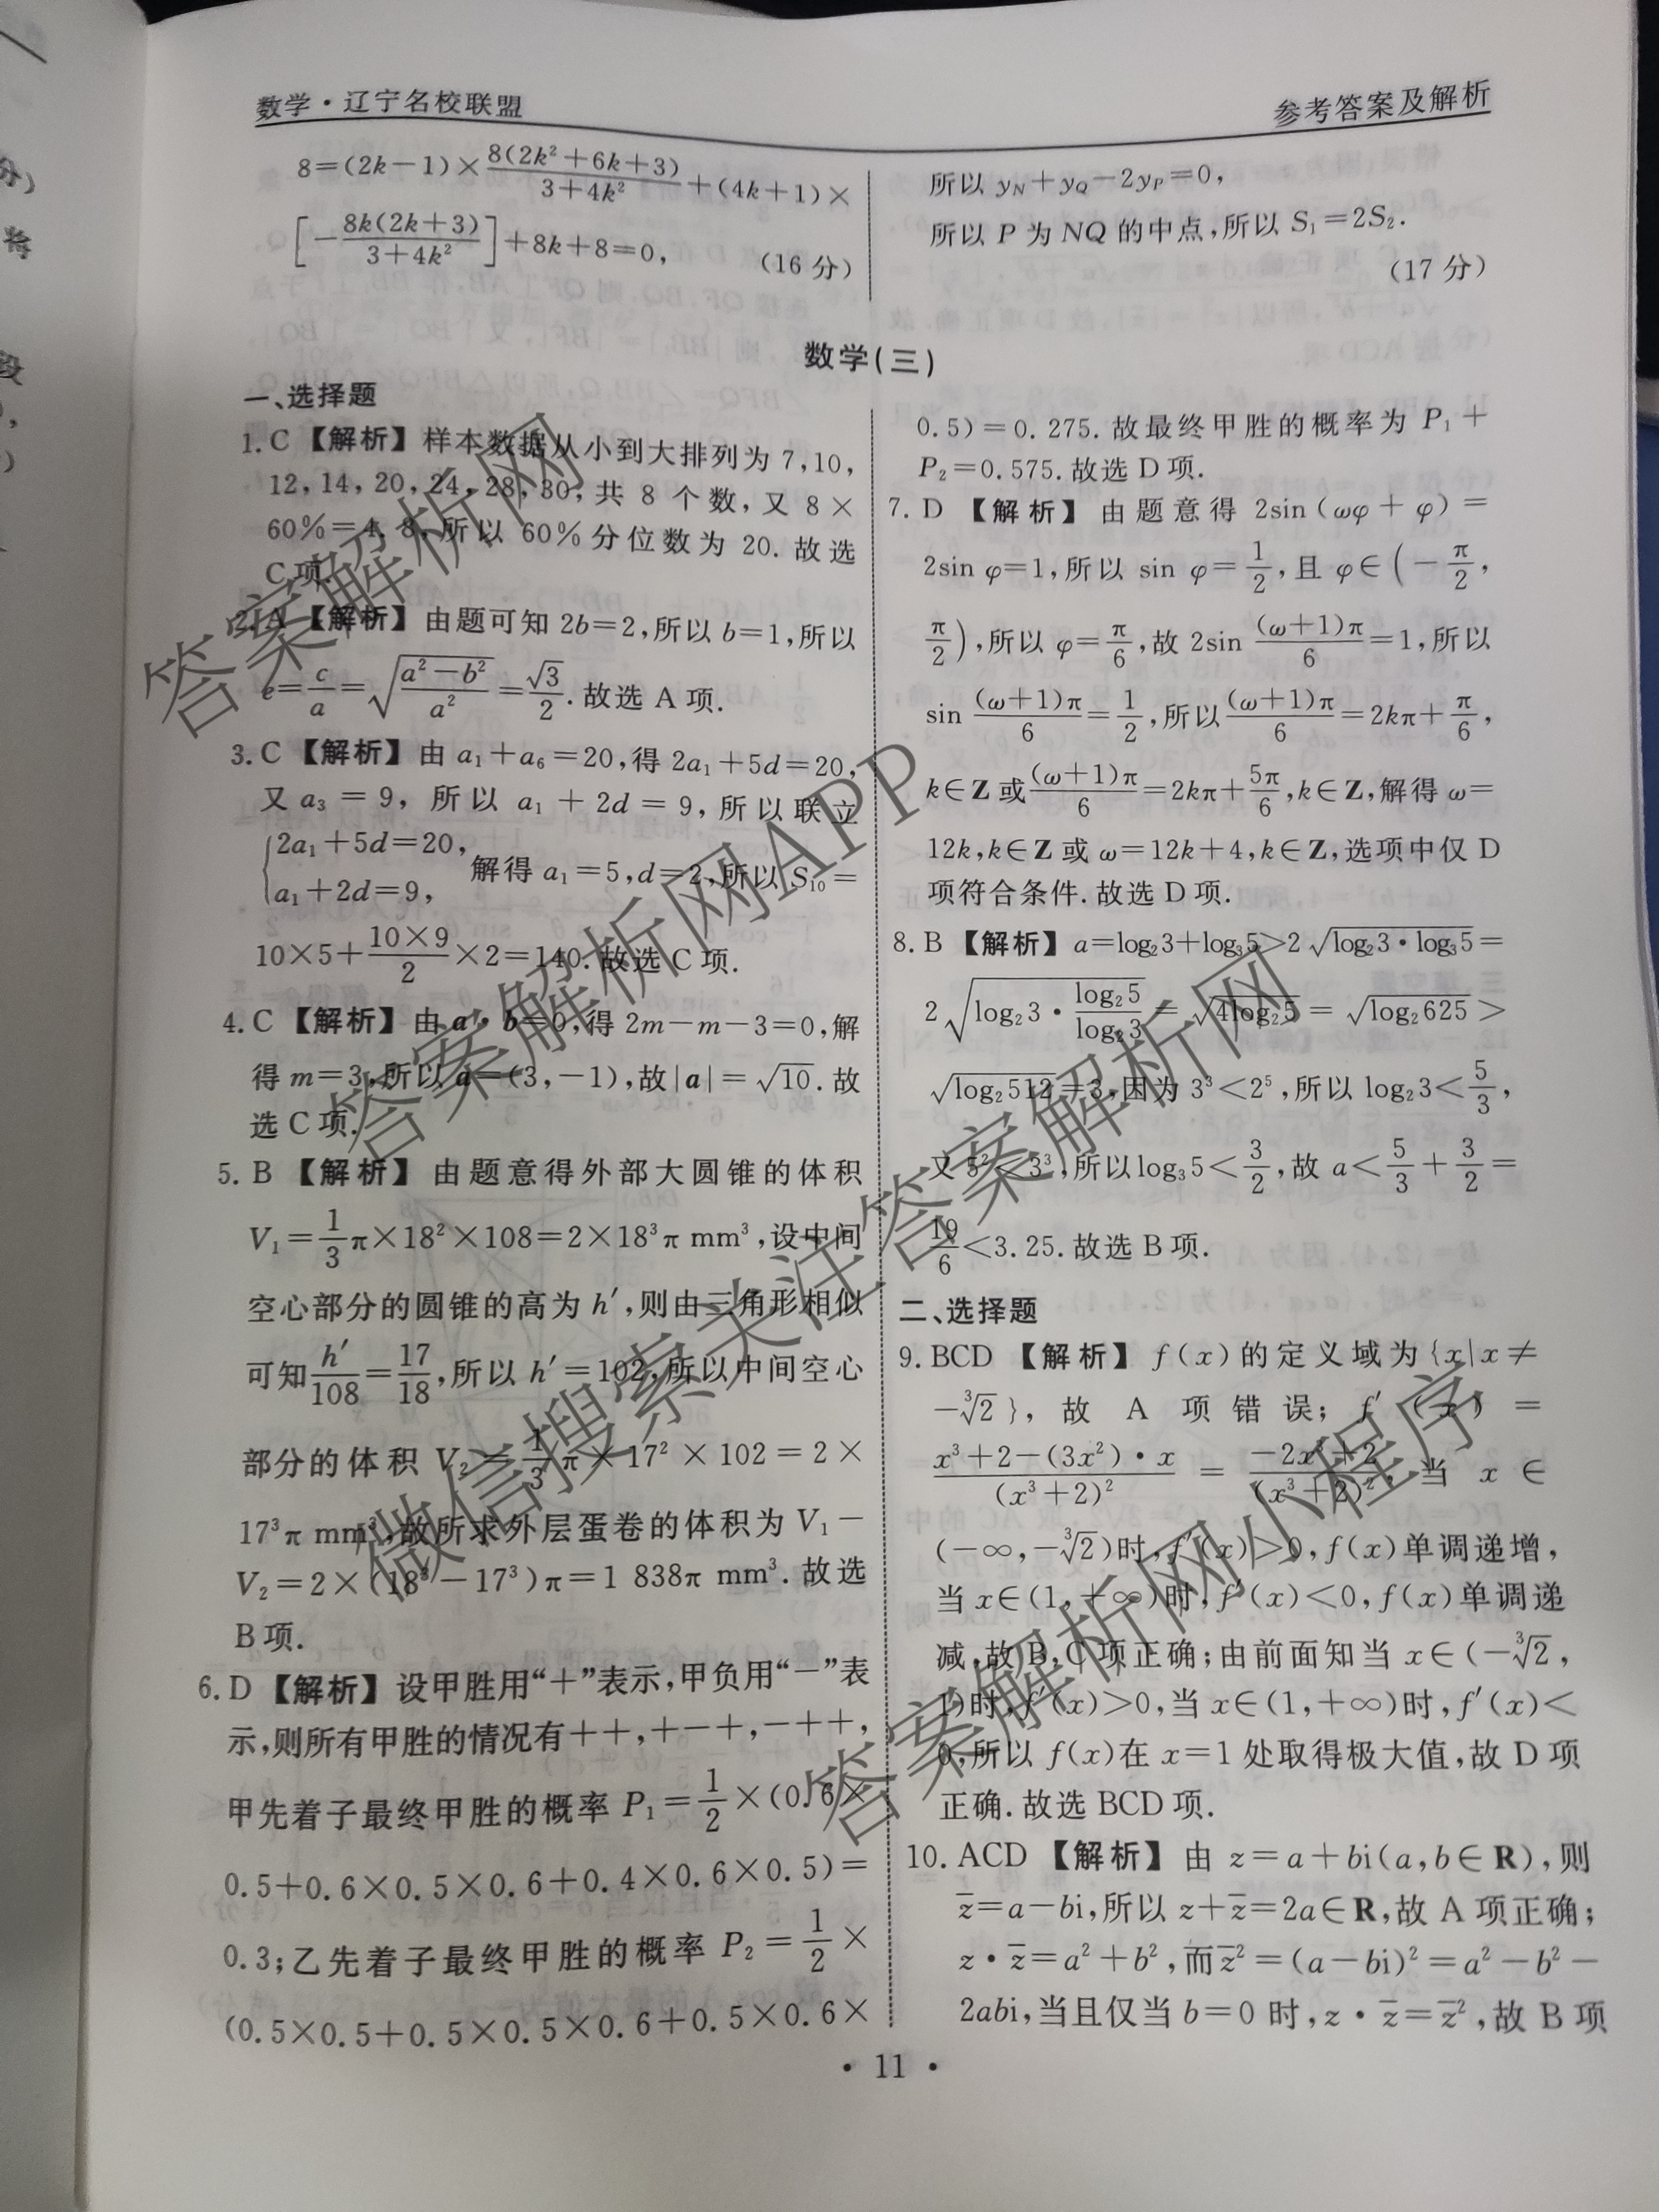 数学·辽宁名校联盟
参考答案及解析
8=(2k-1)×\frac{8(2k²+6k+3)}{3+4k²}+(4k+1)×
[-\frac{8k(2k+3)}{3+4k²}]+8k+8=0, (16 分)
所以 y_N+y_Q-2y_P=0,
所以 P 为 NQ 的中点,所以 S₁=2S₂.
(17 分)
数学(三)
一、选择题
1. C 【解析】样本数据从小到大排列为 7,10,
12,14,20,24,28,30,共 8 个数,又 8×
60%=4.8,所以 60%分位数为 20.故选
C 项.
2. A 【解析】由题可知 2b=2,所以 b=1,所以
e=\frac{c}{a}=\sqrt{\frac{a²-b²}{a²}}=\frac{\sqrt{3}}{2}.故选 A 项.
3. C 【解析】由 a₁+a₆=20,得 2a₁+5d=20,
又 a₃=9,所以 a₁+2d=9,所以联立
{2a₁+5d=20,
a₁+2d=9, 解得 a₁=5,d=2,所以 S₁₀=
10×5+\frac{10×9}{2}×2=140.故选 C 项.
4. C 【解析】由 a·b=0,得 2m-m-3=0,解
得 m=3,所以 a=(3,-1),故|a|=\sqrt{10}.故
选 C 项.
5. B 【解析】由题意得外部大圆锥的体积
V₁=\frac{1}{3}π×18²×108=2×18³π mm³,设中间
空心部分的圆锥的高为 h′,则由三角形相似
可知\frac{h′}{108}=\frac{17}{18},所以 h′=102,所以中间空心
部分的体积 V₂=\frac{1}{3}π×17²×102=2×
17³π mm³,故所求外层蛋卷的体积为 V₁-
V₂=2×(18³-17³)π=1 838π mm³.故选
B 项.
6. D 【解析】设甲胜用“+”表示,甲负用“-”表
示,则所有甲胜的情况有++,+-+,-++,
甲先着子最终甲胜的概率 P₁=\frac{1}{2}×(0.6×
0.5+0.6×0.5×0.6+0.4×0.6×0.5)=
0.3;乙先着子最终甲胜的概率 P₂=\frac{1}{2}×
(0.5×0.5+0.5×0.5×0.6+0.5×0.6×
0.5)=0.275.故最终甲胜的概率为 P₁+
P₂=0.575.故选 D 项.
7. D 【解析】由题意得 2sin(ωφ+φ)=
2sin φ=1,所以 sin φ=\frac{1}{2},且 φ∈(-\frac{π}{2},
\frac{π}{2}),所以 φ=\frac{π}{6},故 2sin \frac{(ω+1)π}{6}=1,所以
sin \frac{(ω+1)π}{6}=\frac{1}{2},所以\frac{(ω+1)π}{6}=2kπ+\frac{π}{6},
k∈Z 或\frac{(ω+1)π}{6}=2kπ+\frac{5π}{6},k∈Z,解得 ω=
12k,k∈Z 或 ω=12k+4,k∈Z,选项中仅 D
项符合条件.故选 D 项.
8. B 【解析】a=log₂3+log₃5>2\sqrt{log₂3·log₃5}=
2\sqrt{log₂3·\frac{log₂5}{log₂3}}=\sqrt{4log₂5}=\sqrt{log₂625}>
\sqrt{log₂512}=3,因为 3³<2⁵,所以 log₂3<\frac{5}{3},
又 5²<3³,所以log₃5<\frac{3}{2},故 a<\frac{5}{3}+\frac{3}{2}=
\frac{19}{6}<3.25.故选 B 项.
二、选择题
9. BCD 【解析】f(x)的定义域为{x|x≠
-\sqrt[3]{2}},故 A 项错误;f′(x)=
\frac{x³+2-(3x²)·x}{(x³+2)²}=\frac{-2x³+2}{(x³+2)²},当 x∈
(-∞,-\sqrt[3]{2})时,f′(x)>0,f(x)单调递增,
当 x∈(1,+∞)时,f′(x)<0,f(x)单调递
减,故 B,C 项正确;由前面知当 x∈(-\sqrt[3]{2},
1)时,f′(x)>0,当 x∈(1,+∞)时,f′(x)<
0,所以 f(x)在 x=1 处取得极大值,故 D 项
正确.故选 BCD 项.
10. ACD 【解析】由 z=a+bi(a,b∈R),则
z̄=a-bi,所以 z+z̄=2a∈R,故 A 项正确;
z·z̄=a²+b²,而z̄²=(a-bi)²=a²-b²-
2abi,当且仅当 b=0 时,z·z̄=z̄²,故 B 项
·11·
答案解析网
答案解析网APP
微信搜索关注答案解析网
答案解析网小程序